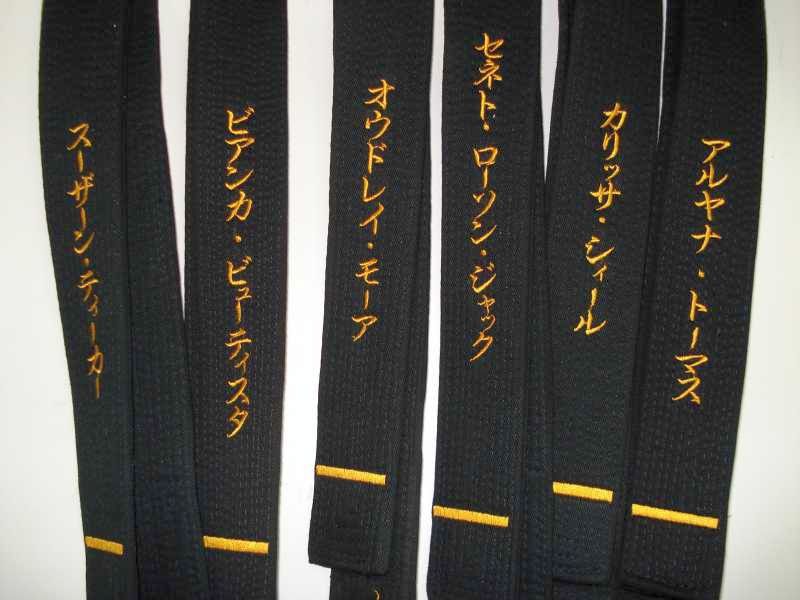 スーザーン・ティーカー
ビアンカ・ビューティスタ
オウドレイ・モーア
セネト・ローソン・ジャック
カリッサ・シィール
アルヤナ・トーマス